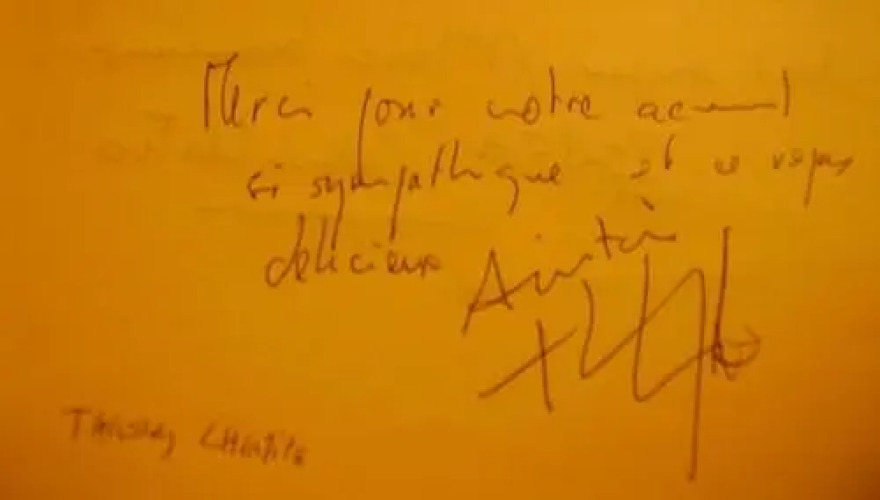 Merci pour votre accueil
si sympathique et ce repas
délicieux
Amitié